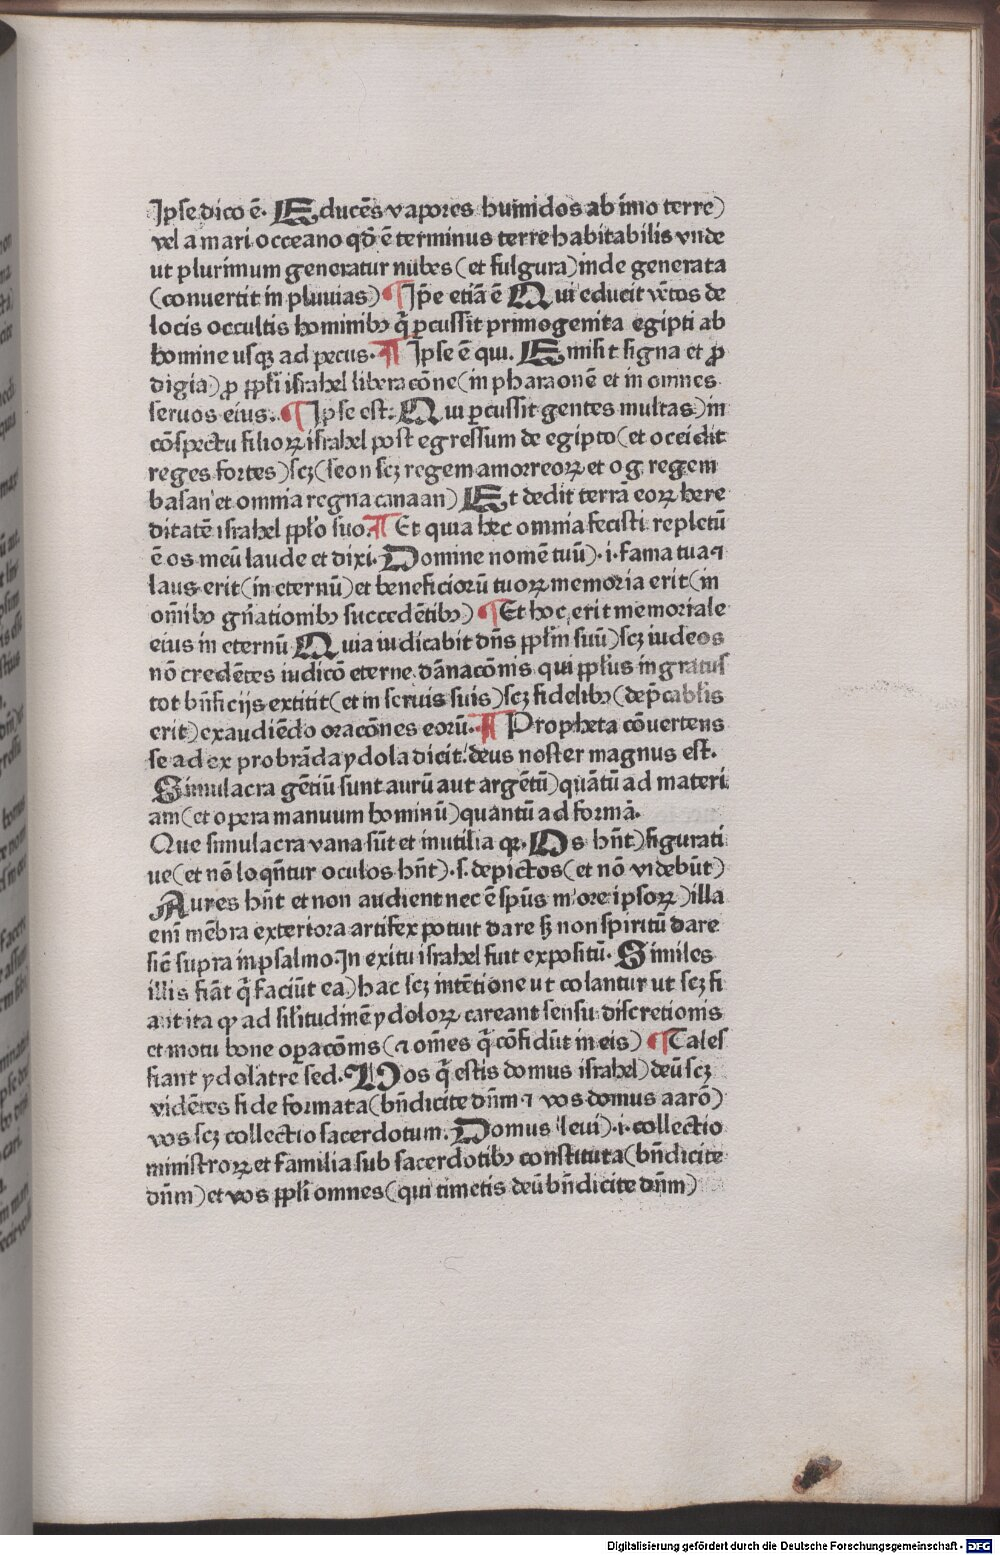 Ipse dico ē. Educēs vapores humidos ab imo terre)
vel a mari occeano qd̄ ē terminus terre habitabilis vnde
ut plurimum generatur nubes (et fulgura) inde generata
(conuertit in pluuias) ¶ Ip̄e etiā ē Qui educit vētos de
locis occultis hominibꝯ q̄ ꝑcussit primogenita egipti ab
homine usqꝫ ad pecus. ¶ Ipse ē qui. Emisit signa et ꝓ
digia) ꝓ pp̄li israhel liberacōne (in pharaonē et in omnes
seruos eius. ¶ Ipse est. Qui ꝑcussit gentes multas) in
cōspectu filioꝝ israhel post egressum de egipto (et occidit
reges fortes) scꝫ (seon scꝫ regem amorreoꝝ et og regem
basan et omnia regna canaan) Et dedit terrā eoꝝ here
ditatē israhel pp̄lo suo ¶ Et quia hec omnia fecisti repletū
ē os meū laude et dixi. Domine nomē tuū) .i. fama tua ⁊
laus erit (in eternū) et beneficiorū tuoꝝ memoria erit (in
om̄ibꝯ gn̄ationibꝯ succedētibꝯ) ¶ Et hoc erit memoriale
eius in eternū Quia iudicabit dn̄s pp̄lm suū) scꝫ iudeos
nō credētes iudicō eterne dānacōnis qui pp̄lus ingratus
tot bn̄ficijs extitit (et in seruis suis) scꝫ fidelibꝯ (dep̄cabl̄is
erit) exaudiēdo oracōnes eorū. ¶ Propheta cōvertens
se ad exprobrāda ydola dicit. deus noster magnus est.
Simulacra gētiū sunt aurū aut argētū) quātū ad materi
am (et opera manuum hominū) quantū ad formā.
Que simulacra vana sūt et inutilia qꝛ. Os hn̄t) figurati
ue (et nō loqn̄tur oculos hn̄t) .s. depictos (et nō videbūt)
Aures hn̄t et non audient nec ē sp̄us in ore ipsoꝝ) illa
eni mēbra exteriora artifex potuit dare sꝫ non spiritū dare
sic̄ supra in psalmo. In exitu israhel fuit expositū. Similes
illis fiāt q̄ faciūt ea) hac scꝫ intētione ut colantur ut scꝫ fi
ant ita ꝙ ad sil̄itudinē ydoloꝝ careant sensu discretionis
et motu bone oꝑacōnis (⁊ om̄es q̄ cōfidūt in eis) ¶ Tales
fiant ydolatre sed. Vos q̄ estis domus israhel) deū scꝫ
vidētes fide formata (bn̄dicite dn̄m ⁊ vos domus aarō)
vos scꝫ collectio sacerdotum. Domus leui) .i. collectio
ministroꝝ et familia sub sacerdotibꝯ constituta (bn̄dicite
dn̄m) et vos pp̄li omnes (qui timetis deū bn̄dicite dn̄m)
Digitalisierung gefördert durch die Deutsche Forschungsgemeinschaft - DFG